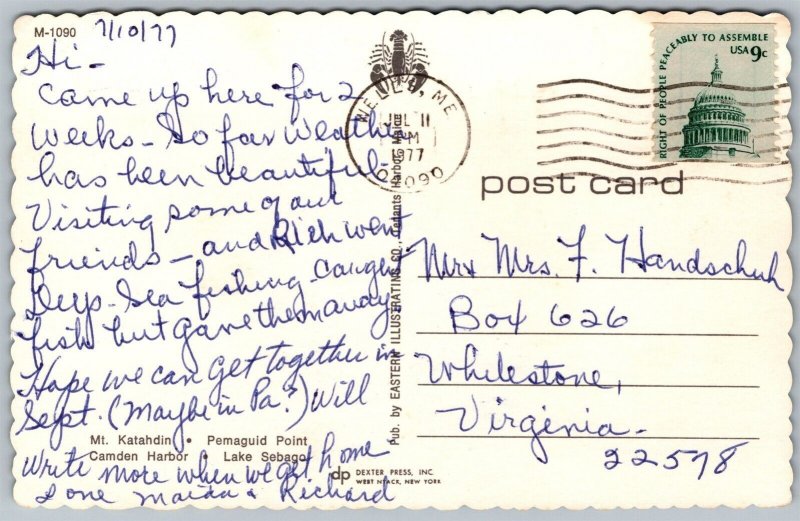 M-1090
7/10/77
Hi -
Came up here for 2
weeks - So far weather
has been beautiful -
Visiting some of our
friends - and Rich went
deep-sea fishing - caught
fish but gave them away
Hope we can get together in
Sept. (Maybe in Pa?) Will
Mt. Katahdin • Pemaquid Point
Camden Harbor • Lake Sebago
write more when we get home
Love Maida & Richard
WELLS, ME
JUL 11
PM
1977
04090
RIGHT OF PEOPLE PEACEABLY TO ASSEMBLE
USA 9c
post card
Pub. by EASTERN ILLUSTRATING CO., Tenants Harbor, Maine
Mr & Mrs. F. Handschuh
Box 626
Whitestone,
Virginia -
22578
dp DEXTER PRESS, INC.
WEST NYACK, NEW YORK